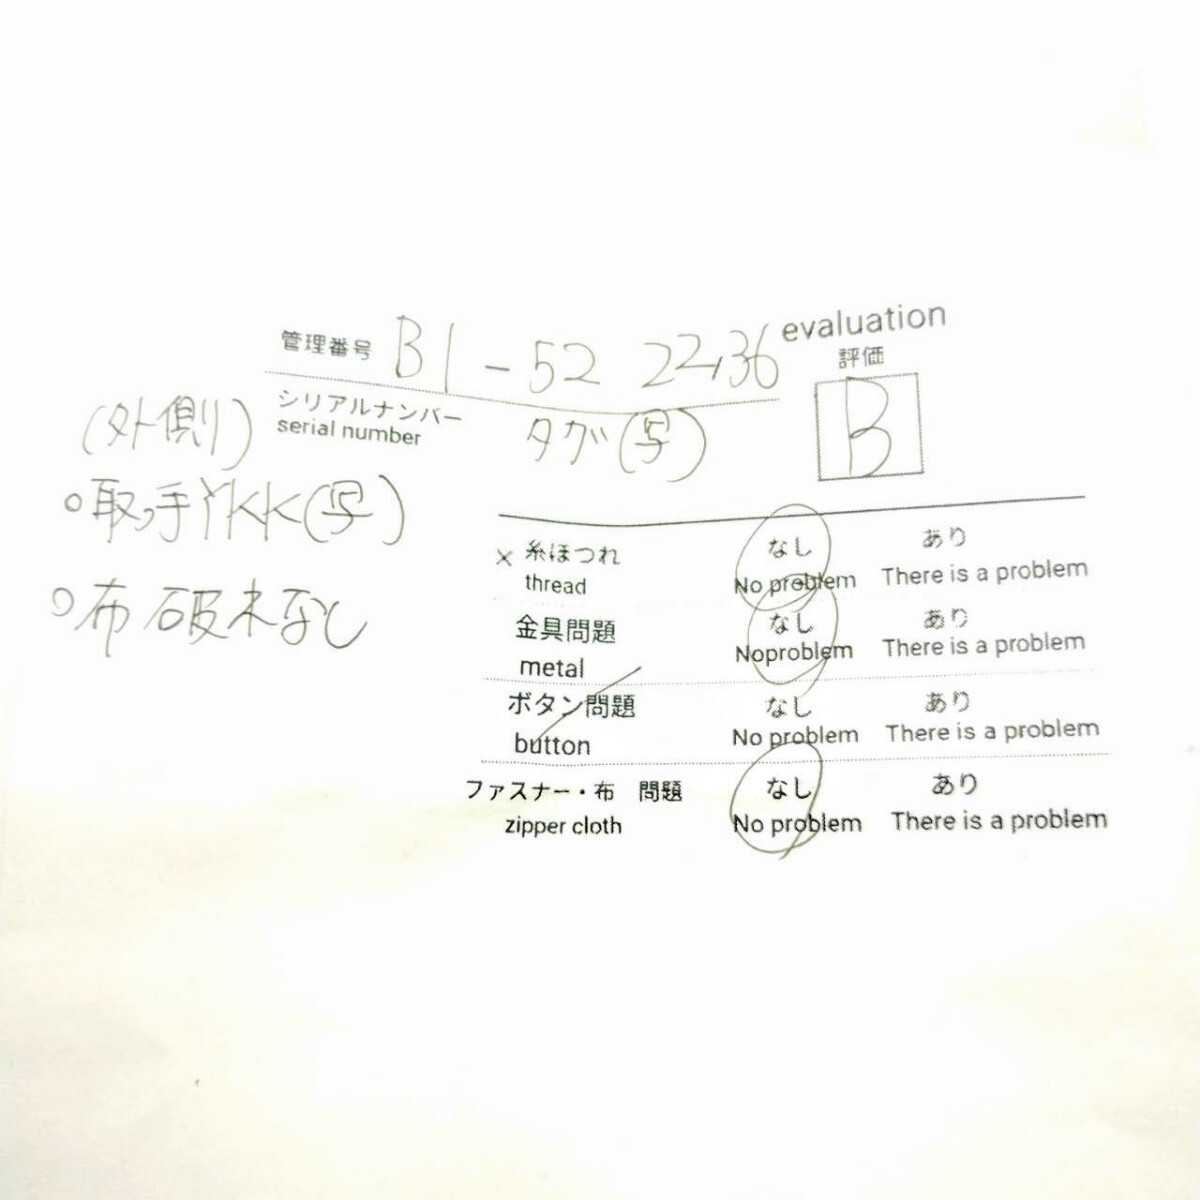 管理番号 B1-52 22,36
evaluation
評価
B
シリアルナンバー
serial number
タグ(写)
(外側)
○取手YKK(写)
○布破れなし
× 糸ほつれ なし あり
thread No problem There is a problem
金具問題 なし あり
metal Noproblem There is a problem
ボタン問題 なし あり
button No problem There is a problem
ファスナー・布 問題 なし あり
zipper cloth No problem There is a problem